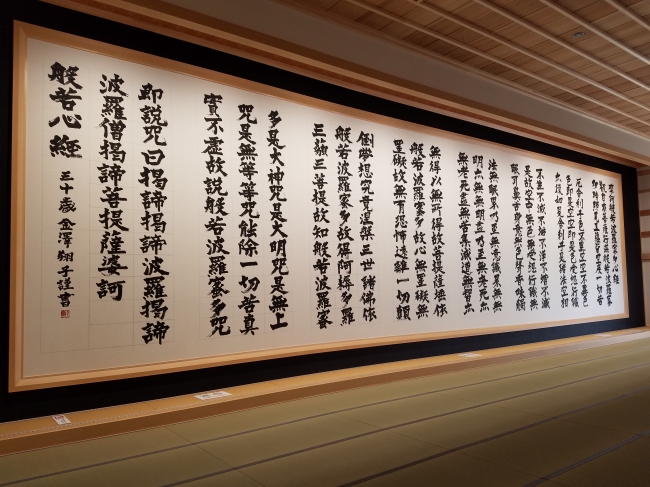 摩訶般若波羅蜜多心經
觀自在菩薩行深般若波羅蜜
多時照見五蘊皆空度一切苦
厄舎利子色不異空空不異色
色即是空空即是色受想行識
亦復如是舎利子是諸法空相
不生不滅不垢不淨不增不減
是故空中無色無受想行識無
眼耳鼻舌身意無色聲香味觸
法無眼界乃至無意識界無無
明亦無無明盡乃至無老死亦
無老死盡無苦集滅道無智亦
無得以無所得故菩提薩埵依
般若波羅蜜多故心無罣礙無
罣礙故無有恐怖遠離一切顛
倒夢想究竟涅槃三世諸佛依
般若波羅蜜多故得阿耨多羅
三藐三菩提故知般若波羅蜜
多是大神咒是大明咒是無上
咒是無等等咒能除一切苦真
實不虚故説般若波羅蜜多咒
即説咒曰揭諦揭諦波羅揭諦
波羅僧揭諦菩提薩婆訶
般若心經
三十歳 金澤翔子謹書